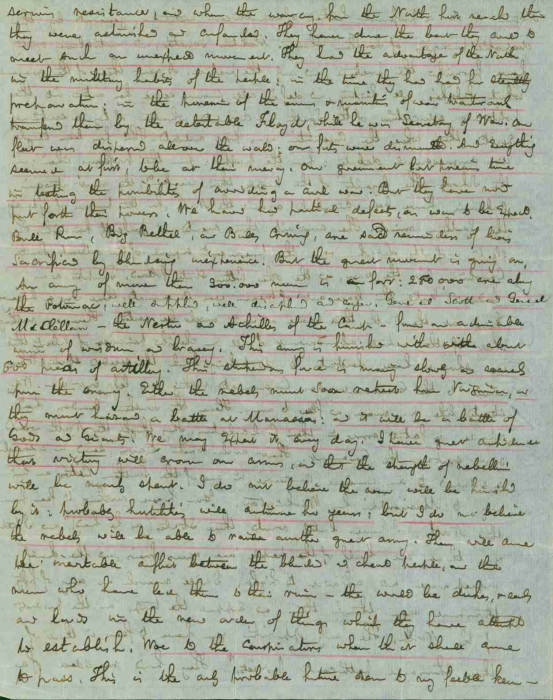 serious resistance, and when the war cry from the North has reached them
they were astonished and confounded. They have done the best they could to
meet such an unexpected movement. They had the advantage of the North
in the military habits of the people; in the time they had had for
preparation; in the possession of the arms and munitions of war
transferred them by the detestable Floyd, while he was Secretary of War. Our
fleet was dispersed all over the world; our forts were dismantled. And everything
seemed at first, to be at their mercy. Our government lost precious time
in testing the possibilities of avoiding a civil war. But they have now
put forth their powers. We have had partial defeats, as was to be expected.
Bull Run, Big Bethel, and Balls are sad reminders of lives
sacrificed by blundering inexperience. But the great movement is going on.
An army of more than 300.000 men is on foot: 250 000 are along
the Potomac, well supplied, well disciplined and eager. General Scott and General
McClellan – the Nestor and Achilles of the – form an admirable
union of wisdom and bravery. This army is furnished with about
500 pieces of artillery. This stupendous force is moving slowly
upon the enemy. Either the rebels must soon retreat from Virginia, or
they must hazard a battle at Manassas: and it will be a battle of
Gods and Giants. We may expect it any day. I have great confidence
that victory will crown our arms, and that the strength of rebellion
will be mainly spent. I do not believe the war will be finished
by it: probably hostilities will continue for years; but I do not believe
the rebels will be able to raise another great army. Then will come
the inevitable conflict between the blinded and cheated people, and the
men who have led them to their ruin – the would be dukes,
and lords in the new order of things which they have attempted
to establish. Woe to the Conspirators when that shall come
to pass. This is the only probable future drawn to my feeble ken –